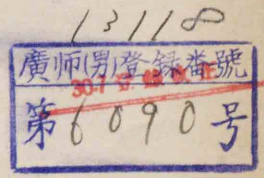 13118
廣师(男)登録番號
第6090号